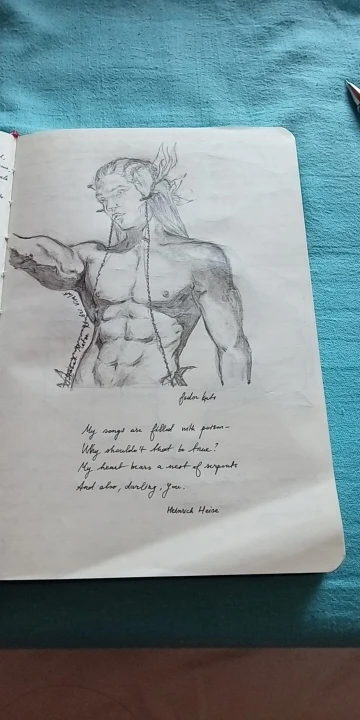 My songs are filled with poison—
Why shouldn't that be true?
My heart bears a nest of serpents
And also, darling, you.
Heinrich Heine